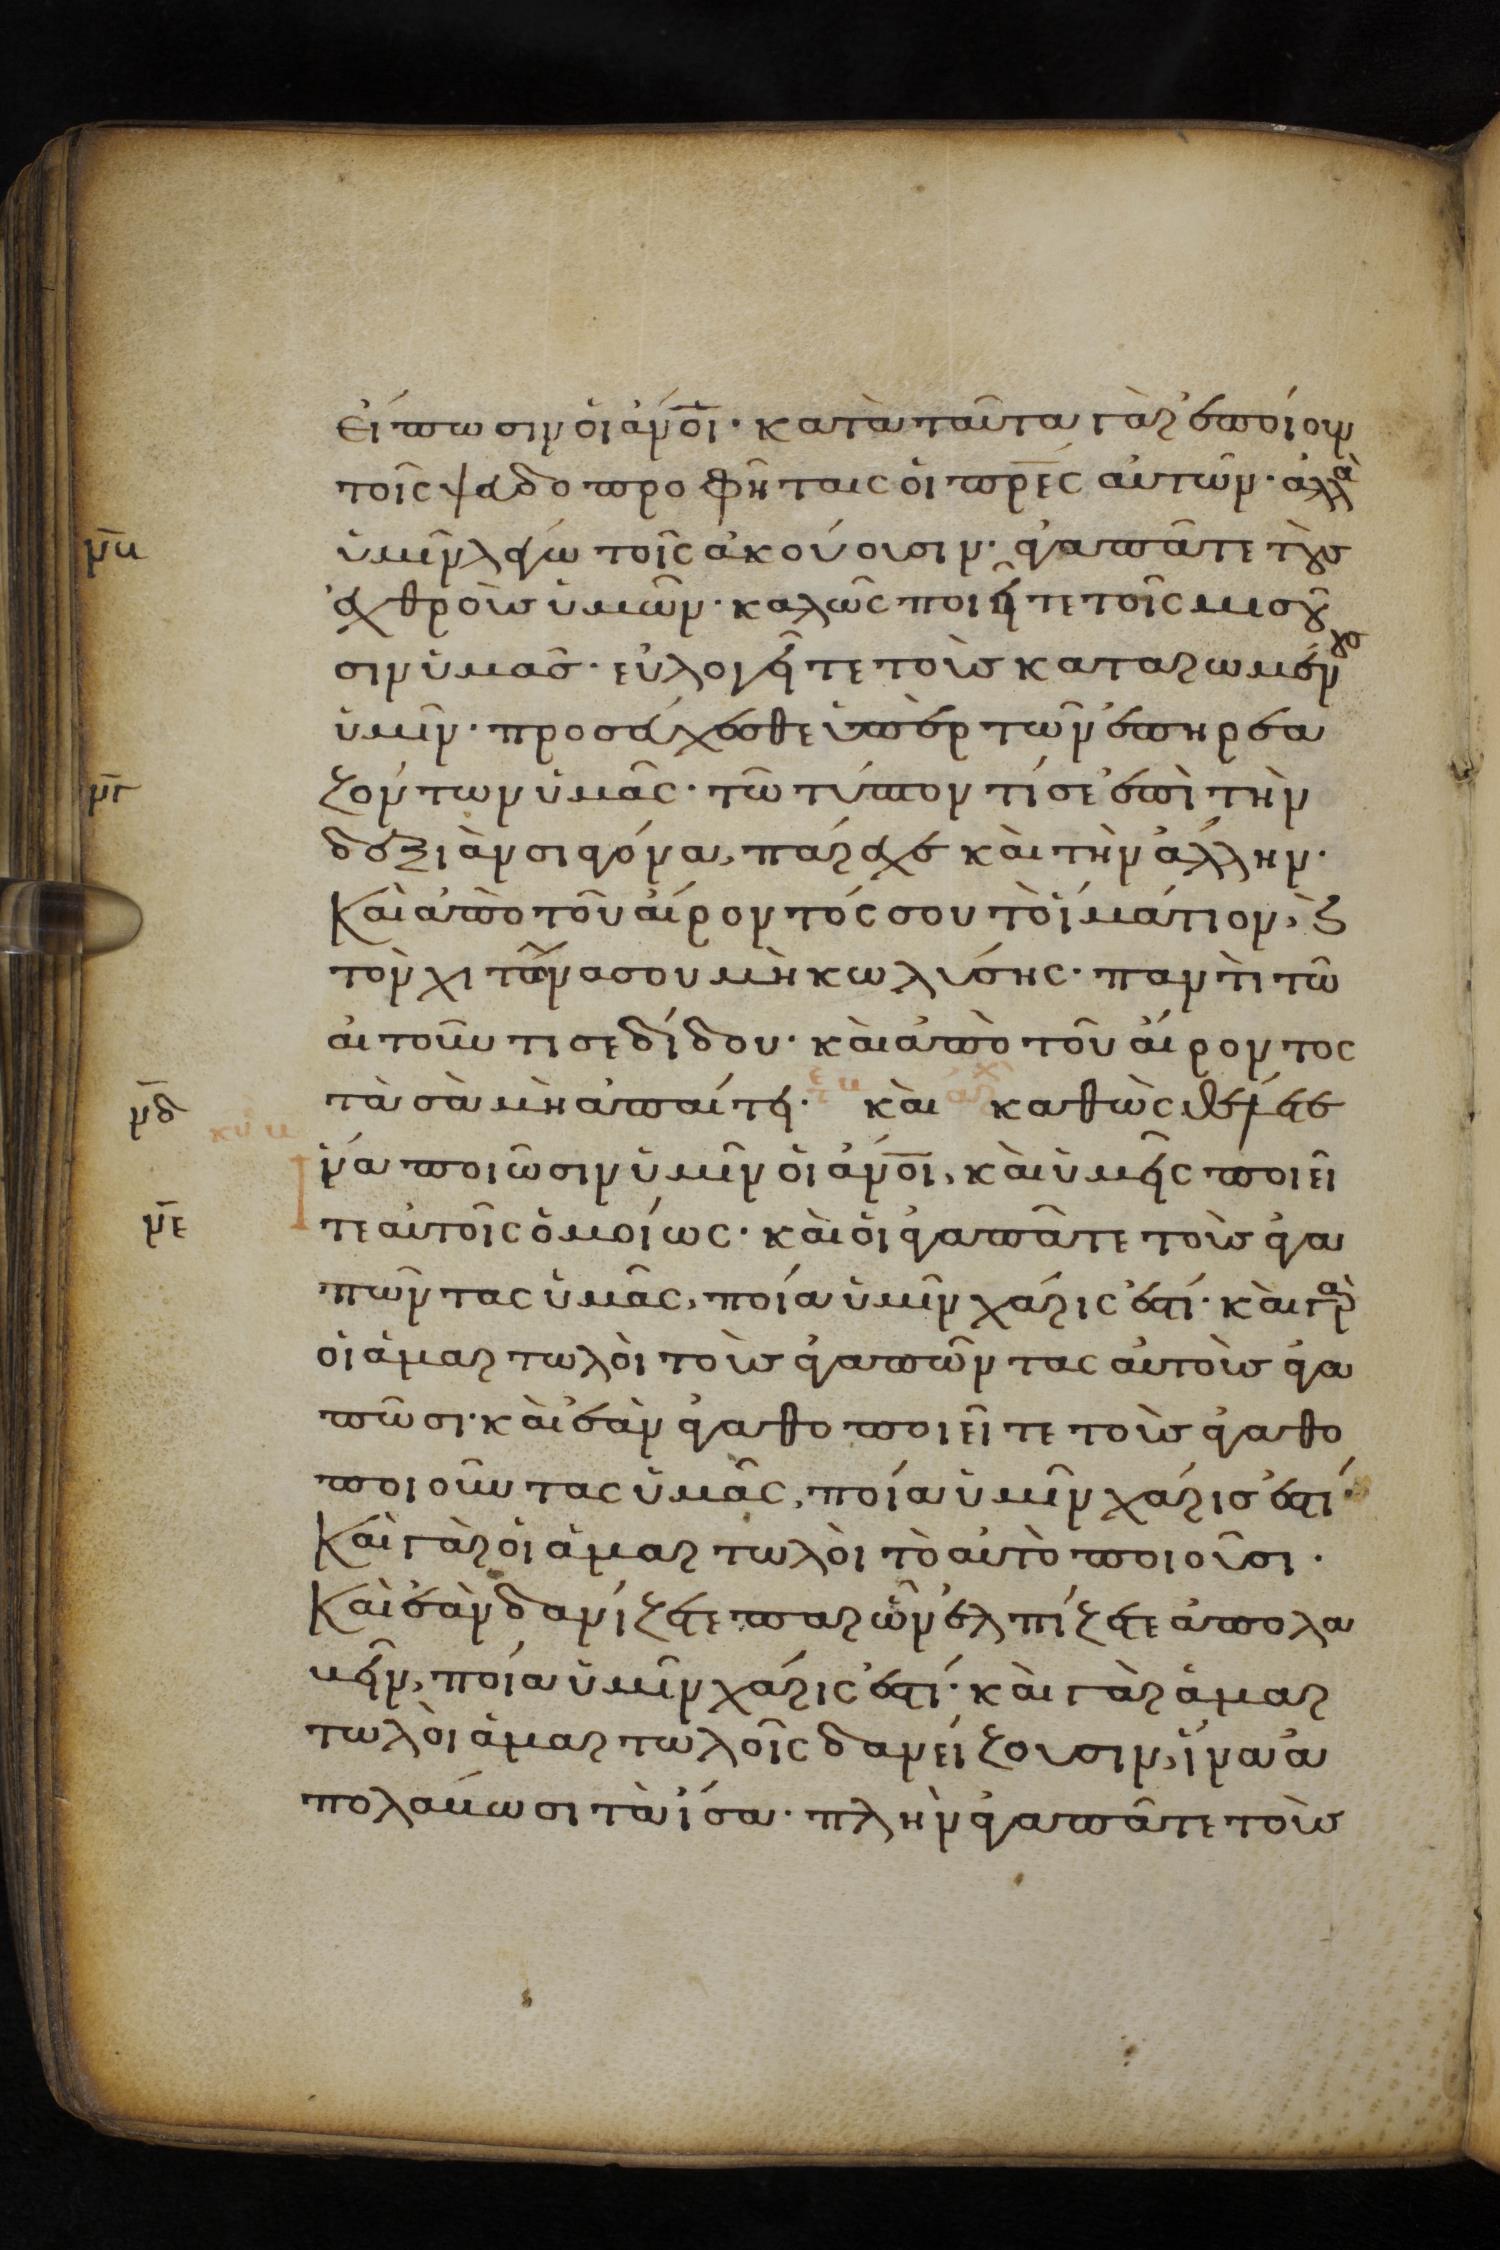 εἴπωσιν οἱ ἄνοι· κατὰ ταῦτα γὰρ ἐποίουν
τοῖς ψευδοπροφήταις οἱ πρες αὐτῶν· ἀλλὰ
νβ ὑμῖν λέγω τοῖς ἀκούουσιν· ἀγαπᾶτε τοὺς
ἐχθροὺς ὑμῶν· καλῶς ποιεῖτε τοῖς μισοῦ
σιν ὑμᾶς· εὐλογεῖτε τοὺς καταρωμένους
ὑμῖν· προσεύχεσθε ὑπὲρ τῶν ἐπηρεα
νγ ζόντων ὑμᾶς· τῶ τύπτοντί σε ἐπὶ τὴν
δεξιὰν σιαγόνα, πάρεχε καὶ τὴν ἄλλην·
Καὶ ἀπὸ τοῦ αἴροντός σου τὸ ἱμάτιον, καὶ
τὸν χιτῶνα σου μὴ κωλύσης· παντὶ τῶ
αἰτοῦντι σε δίδου· καὶ ἀπὸ τοῦ αἴροντος
νδ τὰ σὰ μὴ ἀπαίτει· καὶ καθὼς θέλετε
ἵνα ποιῶσιν ὑμῖν οἱ ἄνοι, καὶ ὑμεῖς ποιεῖ
νε τε αὐτοῖς ὁμοίως· καὶ εἰ ἀγαπᾶτε τοὺς ἀγα
πῶντας ὑμᾶς, ποία ὑμῖν χάρις ἐστί· καὶ γὰρ
οἱ ἁμαρτωλοὶ τοὺς ἀγαπῶντας αὐτοὺς ἀγα
πῶσι· καὶ ἐὰν ἀγαθοποιεῖτε τοὺς ἀγαθο
ποιοῦντας ὑμᾶς, ποία ὑμῖν χάρις ἐστί·
Καὶ γὰρ οἱ ἁμαρτωλοὶ τὸ αὐτὸ ποιοῦσι·
Καὶ ἐὰν δανίζετε παρ ὧν ἐλπίζετε ἀπολα
βεῖν, ποία ὑμῖν χάρις ἐστί· καὶ γὰρ ἁμαρ
τωλοὶ ἁμαρτωλοῖς δανείζουσιν, ἵνα ἀ
πολάβωσι τὰ ἴσα· πλὴν ἀγαπᾶτε τοὺς